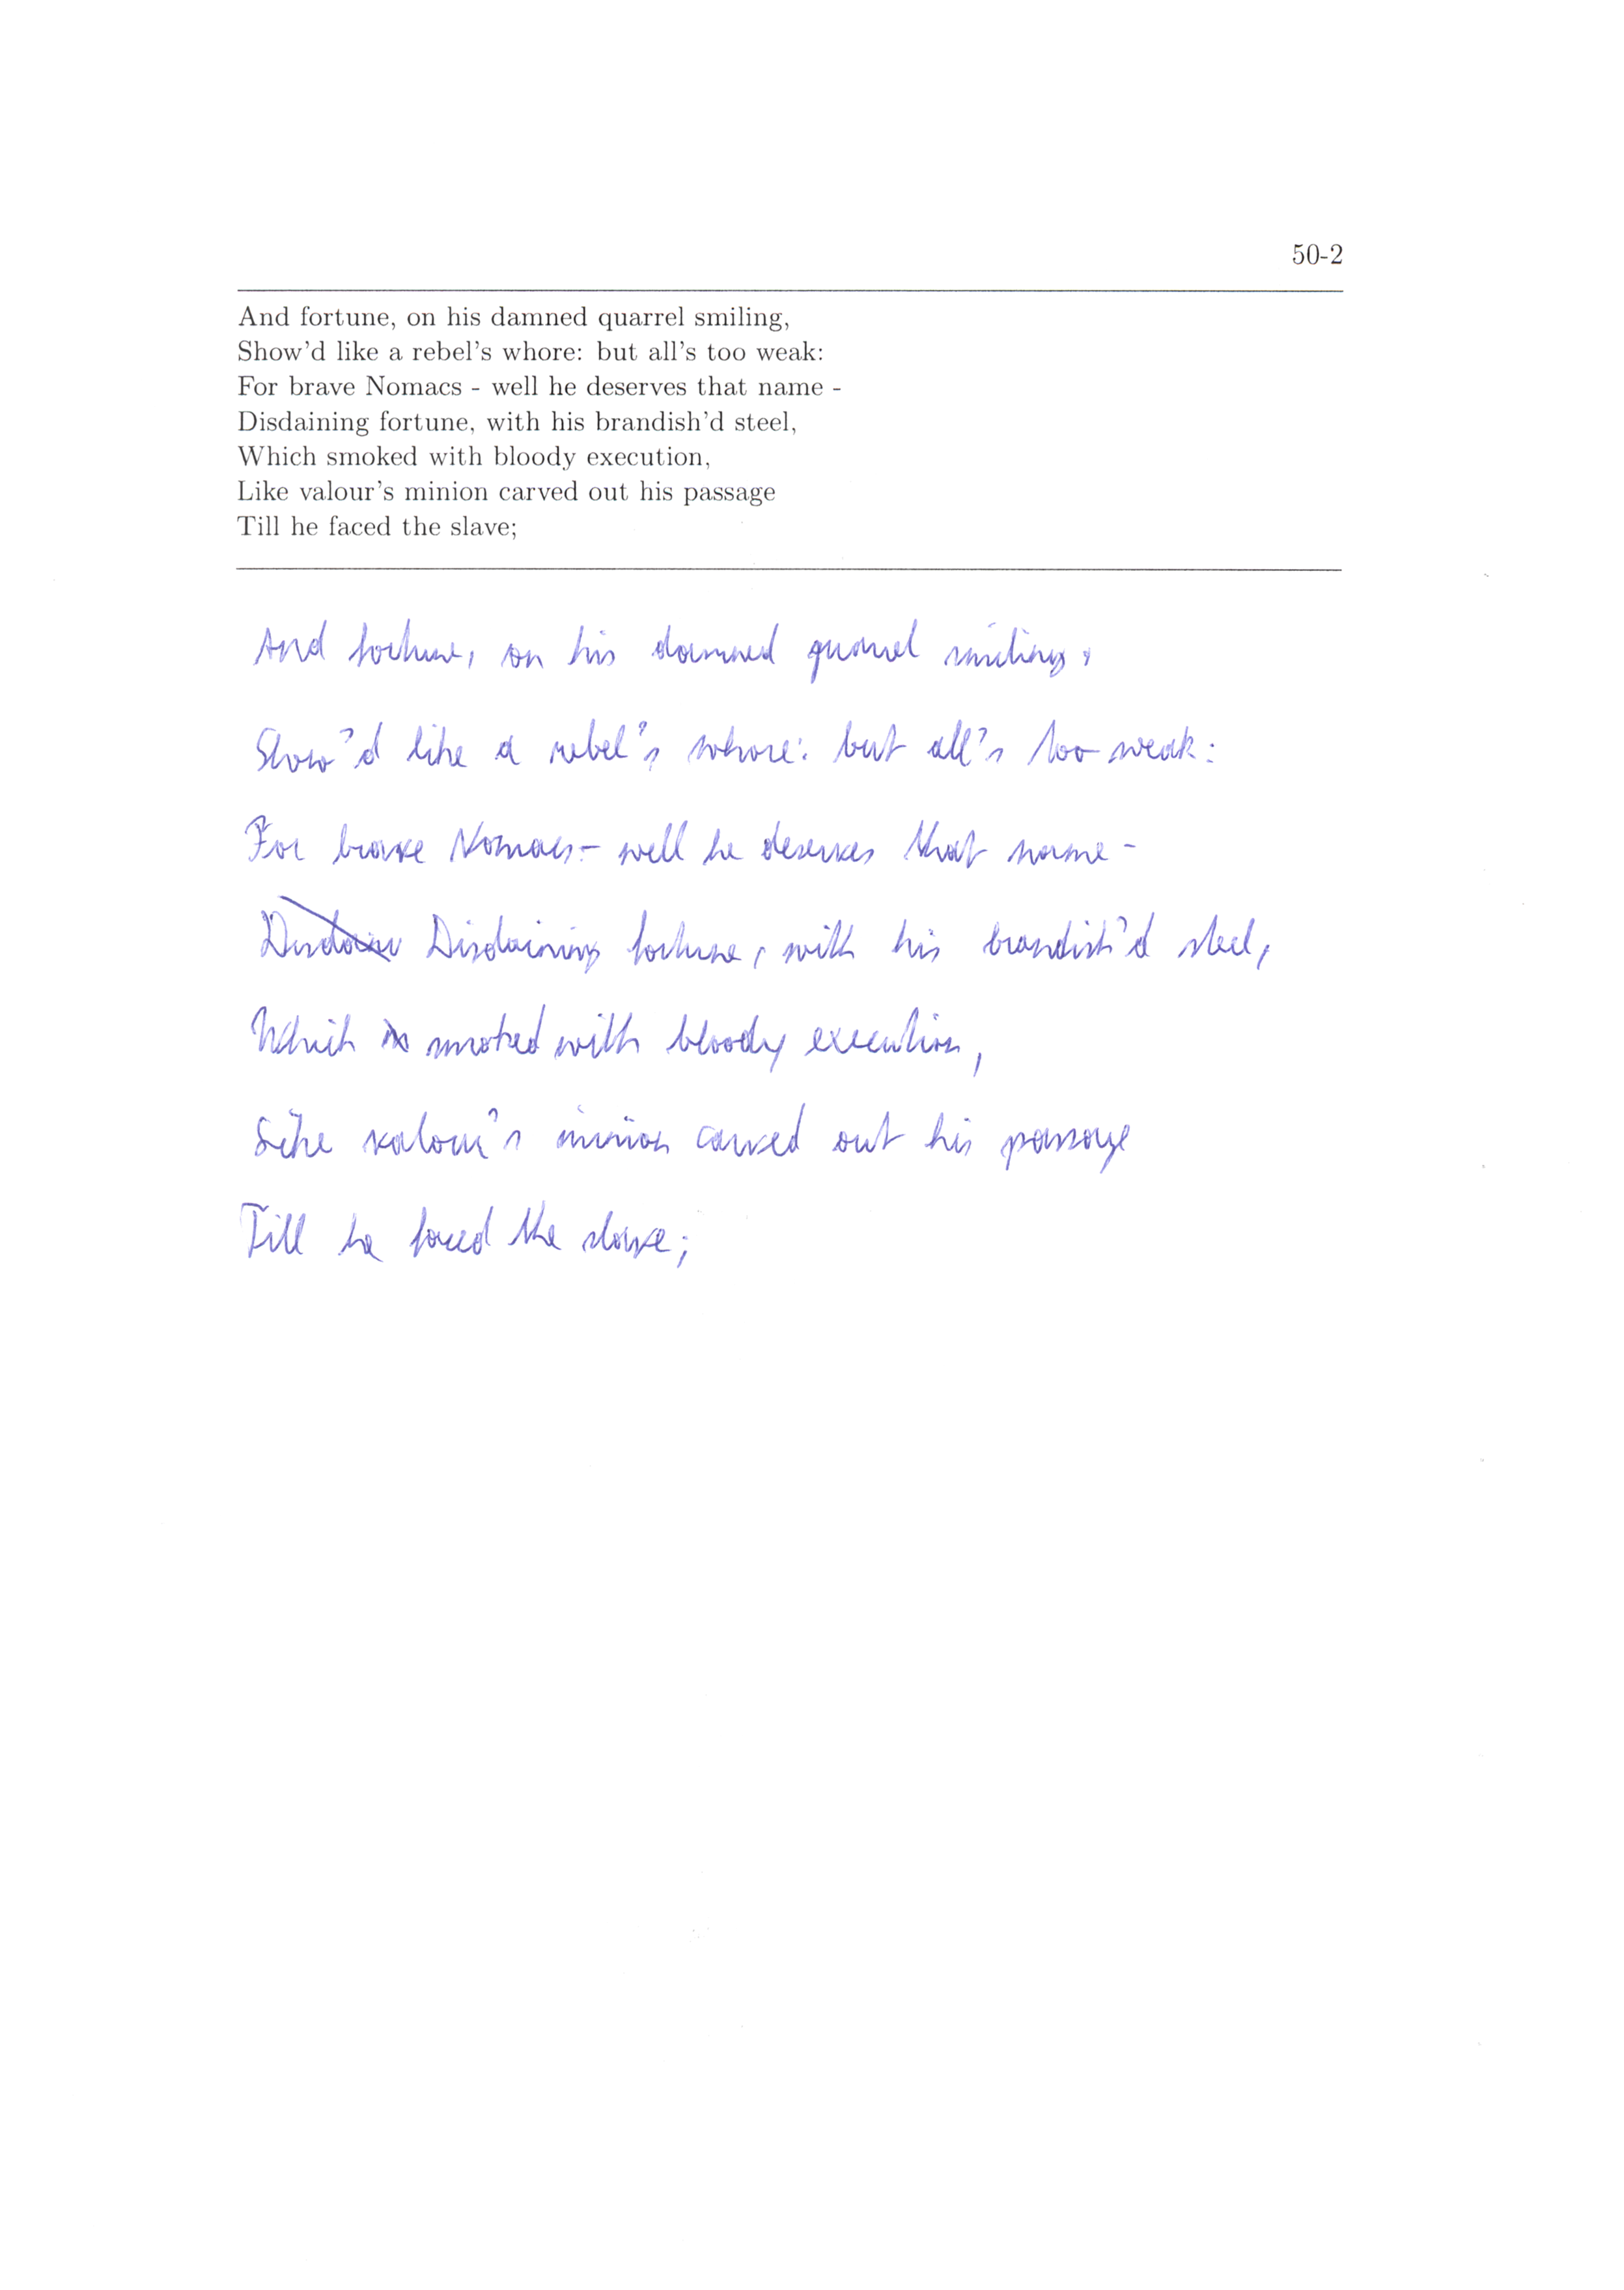 50-2
And fortune, on his damned quarrel smiling,
Show'd like a rebel's whore: but all's too weak:
For brave Nomacs - well he deserves that name -
Disdaining fortune, with his brandish'd steel,
Which smoked with bloody execution,
Like valour's minion carved out his passage
Till he faced the slave;
And fortune, on his damned quarrel smiling,
Show'd like a rebel's whore: but all's too weak:
For brave Nomacs - well he deserves that name -
Disdaining fortune, with his brandish'd steel,
Which smoked with bloody execution,
Like valour's minion carved out his passage
Till he faced the slave;